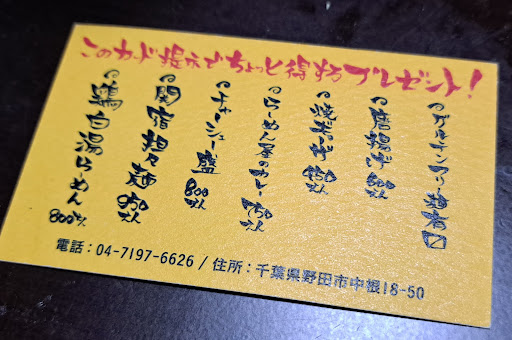 このカード提示でちょっと得するプレゼント!
グルテンフリー麺有〼
唐揚げ 800えん
焼そば 750えん
らーめん屋のカレー 750えん
チャーシュー盛 800えん
関宿担々麺 950えん
鶏白湯らーめん 800えん
電話:04-7197-6626 / 住所:千葉県野田市中根18-50